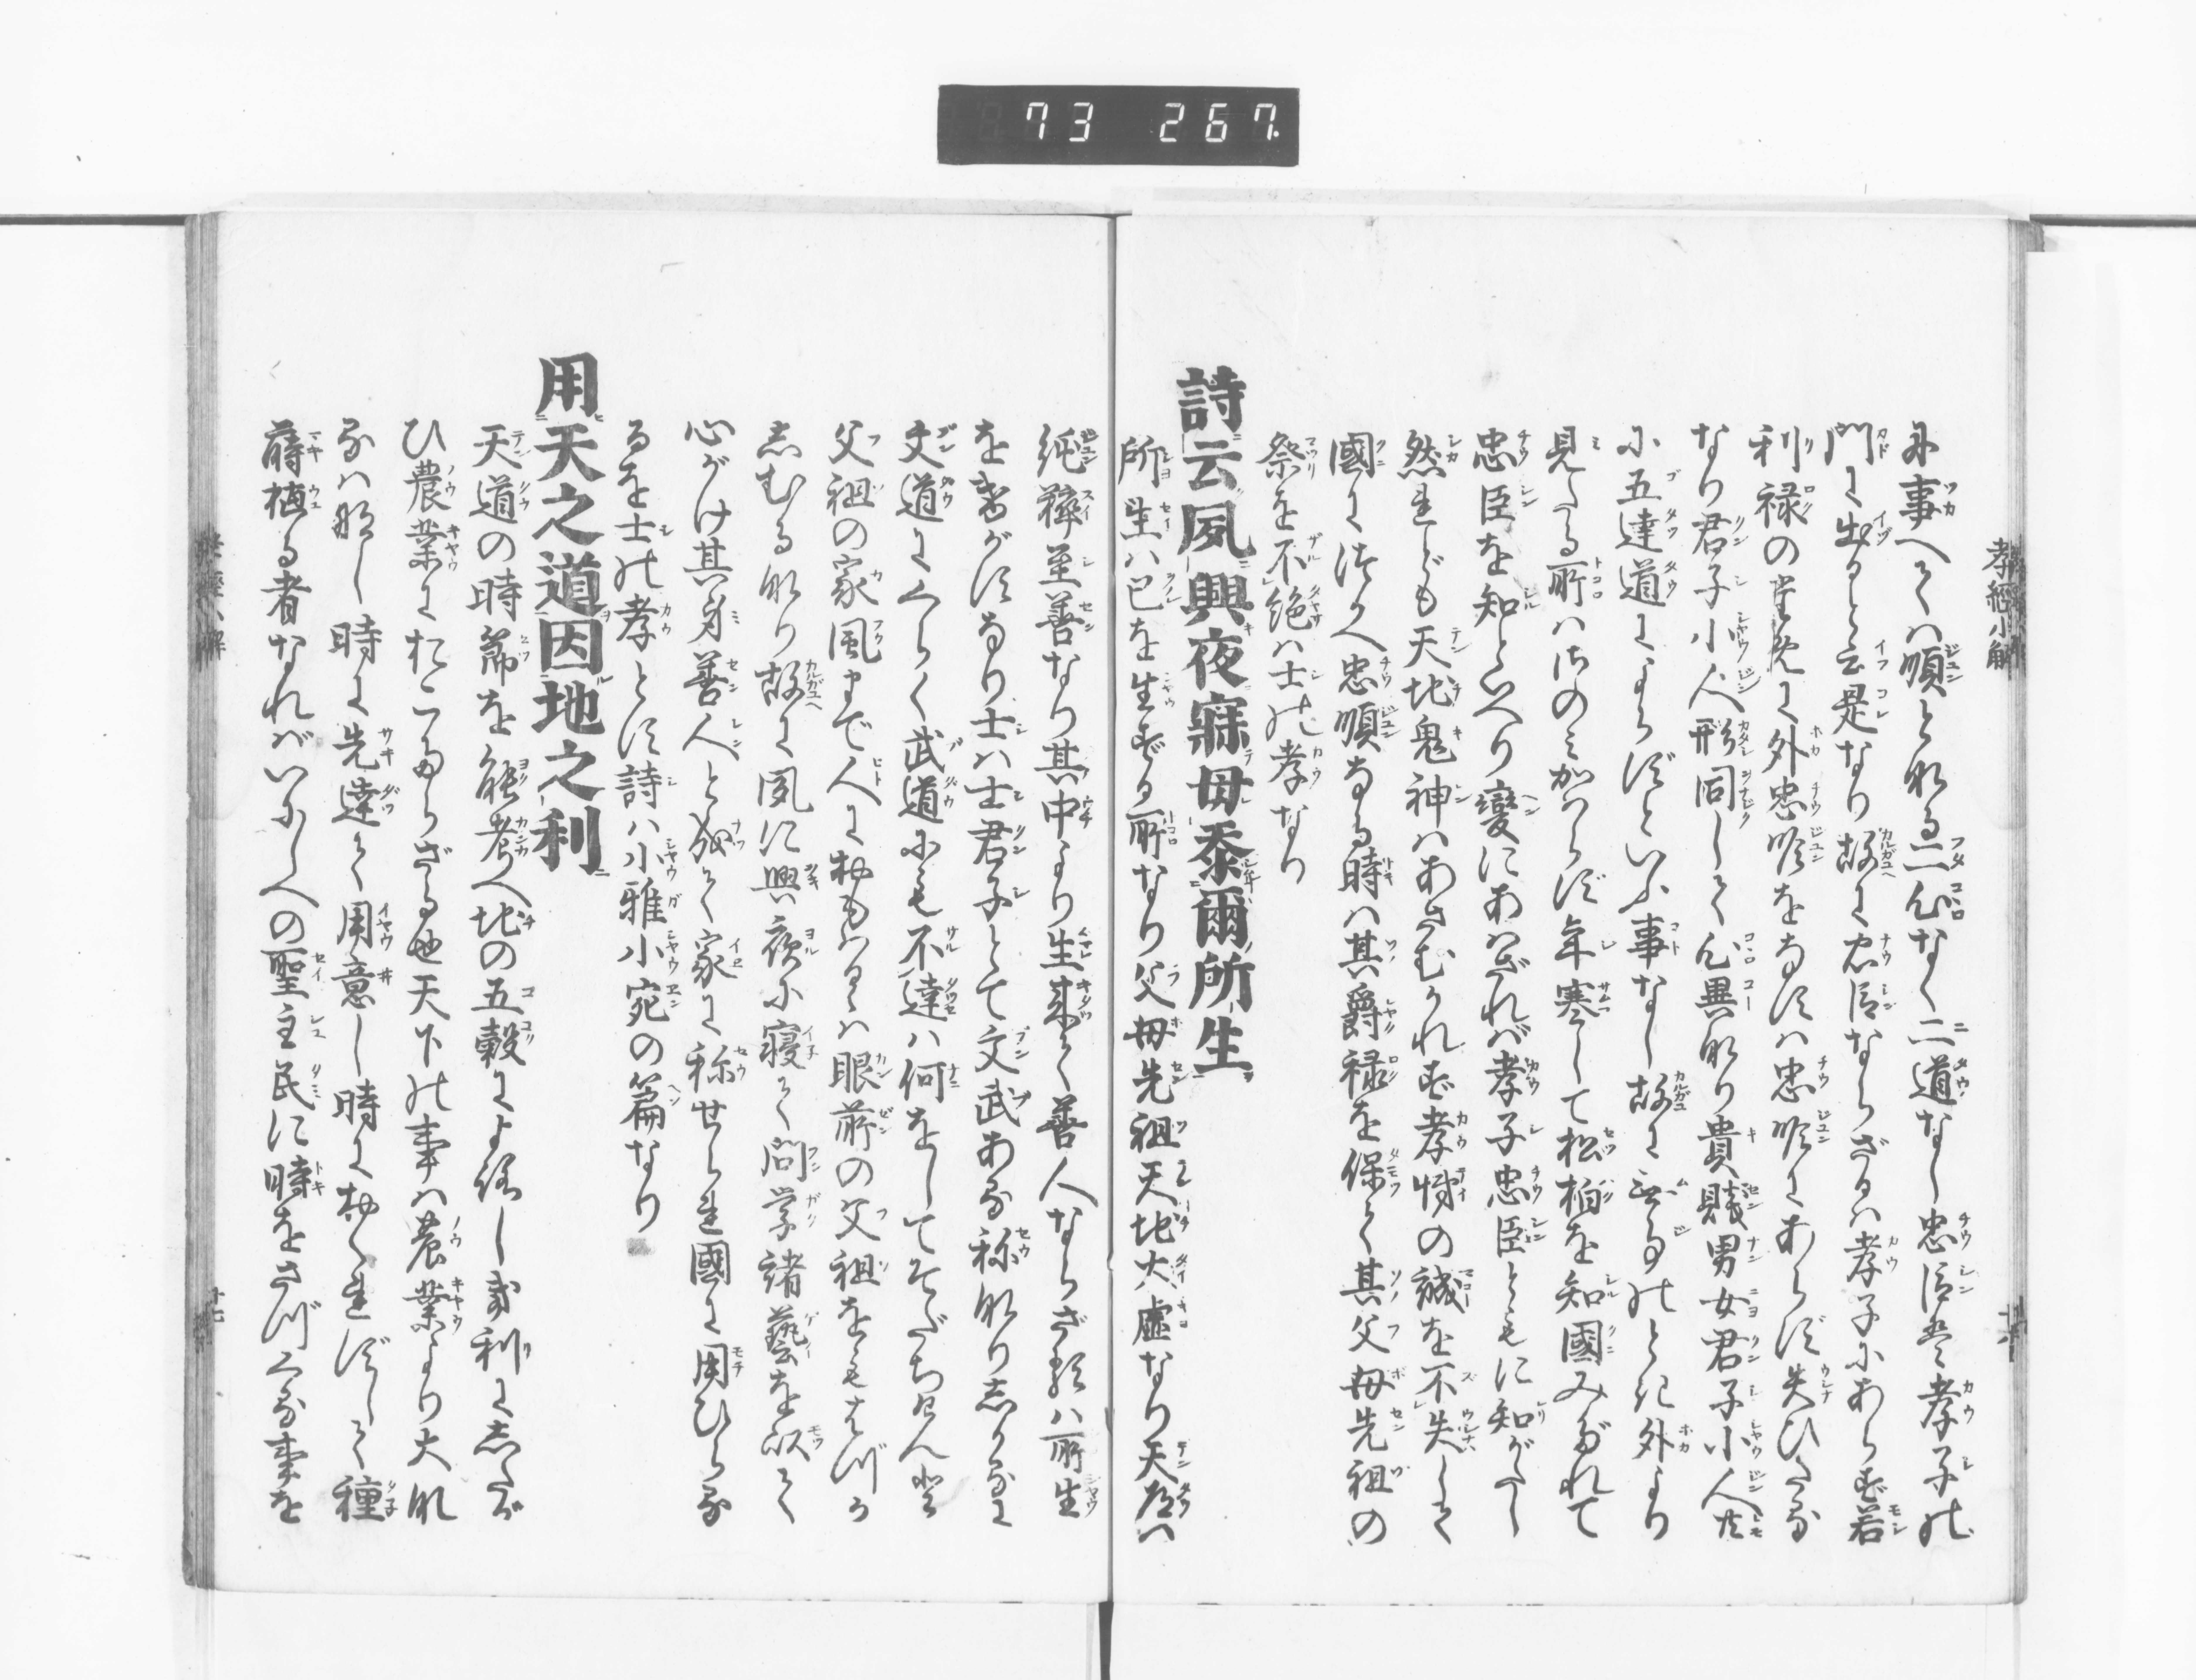 73 267.
孝經小解
に事へては順と成る二心なく二道なし忠臣は孝子の
門に出ると云是なり故に忠臣ならざるは孝子にあらず若
利禄の
外忠順をなすは忠順にあらず失ひたる
なり君子小人形同して心異なり貴賤男女君子小人共
に五達道によらずといふ事なし故に
の
外より
見たる所はかはらず年寒して松柏を知國みだれて
忠臣を知といへり變にあはざれば孝子忠臣ともに知がたし
然れども天地鬼神はあざむかれず孝悌の誠を不失して
國につかへ忠順なる時は其爵禄を保て其父母先祖の
祭を不絶は士の孝なり
詩云夙興夜寐毋忝爾所生
所生は已を生ずる所なり父母先祖天地大虚なり天道は
純粹至善なり其中より生來て善人ならざれば所生
をけがすなり士は士君子とて文武ある称なりしかるに
文道にくらく武道にも不達は何をして
父祖の家風まで人におもはるゝは眼前の父祖をも
しむるなり故に夙に興夜に寝て問学諸藝を以て
心がけ其身善人と成て家に称せられ國に用ひらる
るを士の孝とす詩は小雅小宛の篇なり
用天之道因地之利
天道の時節を能考へ地の五穀によろしき利にしたが
ひ農業におこたらざる也天下の事は農業より大な
るはなし時に先達て用意し時におくれずして種
蒔植る者なればいにしへの聖主民に時をさづくる事を
十七